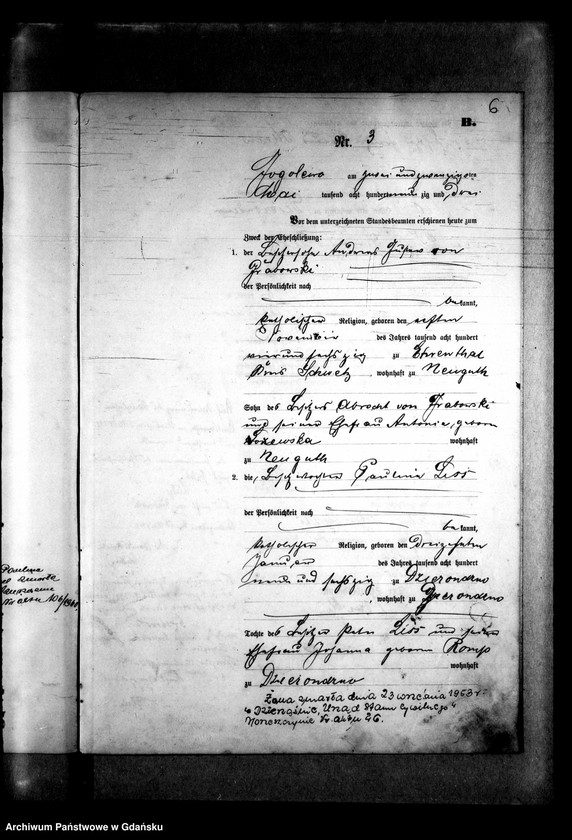 6
B.
Nr. 3
am zwei und zwanzigsten
Mai tausend acht hundert neun zig und drei
Vor dem unterzeichneten Standesbeamten erschienen heute zum
Zweck der Eheschließung:
1. der Besitzersohn Andreas Gustav von
Grabowski
der Persönlichkeit nach
bekannt,
katholischer Religion, geboren den elften
November des Jahres tausend acht hundert
vier und sechszig zu Ehrenthal
Kreis Schwetz, wohnhaft zu Neuguth
Sohn des Besitzers Albrecht von Grabowski
und seiner Ehefrau Antonie, geborn
wohnhaft
zu Neuguth
2. die Paulina Liss
der Persönlichkeit nach
bekannt,
katholischer Religion, geboren den Dreizehnten
Januar des Jahres tausend acht hundert
neun und sechszig zu Dzierondzno
, wohnhaft zu Dzierondzno
Tochter des Besitzer Peter Liss und seiner
Ehefrau Johanna geborn Romps
wohnhaft
zu Dzierondzno
Żona zmarła dnia 23 września 1963 r
w Dzierążnie, Urząd Stanu Cywilnego
Nr aktu 26.
Paulina
zmarła
Nr aktu
Archiwum Państwowe w Gdańsku